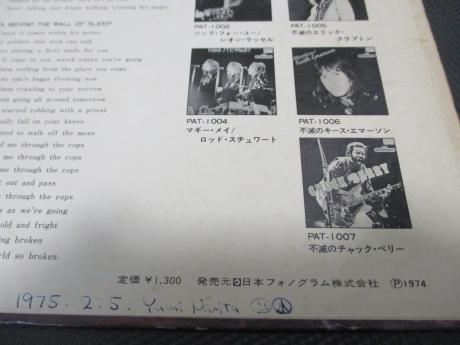 Never talking just keeps walking, spreading his magic.
BEHIND THE WALL OF SLEEP
turned within his power
petition that wish can talk
es shining, a dirty smile for you
'll come on you, watch where you're going
them nothing from the place you come
the sun's began frosting now
them crawling to your sorrow
them going all around tomorrow
started robbing with a priest
eally fall on your knees
nted to walk off the moss
d me through the cops
me through the cops
t out and pass
e through the cops
s as we're going
old and fright
ing broken
rld so broken.
PAT-1002
ソング・フォー・ユー/
レオン・ラッセル
PAT-1005
不滅のエリック・
クラプトン
PAT-1004
マギー・メイ/
ロッド・スチュワート
Keith Emerson
PAT-1006
不滅のキース・エマーソン
CHUCK BERRY
PAT-1007
不滅のチャック・ベリー
定価 ¥1,300 発売元 日本フォノグラム株式会社 Ⓟ1974
1975. 2. 5. Yumi Morita